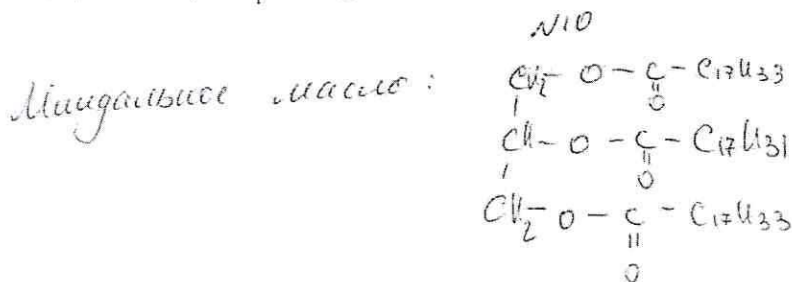 N10
Миндальное масло:
CH2 - O - C - C17H33
O
CH - O - C - C17H31
O
CH2 - O - C - C17H33
O